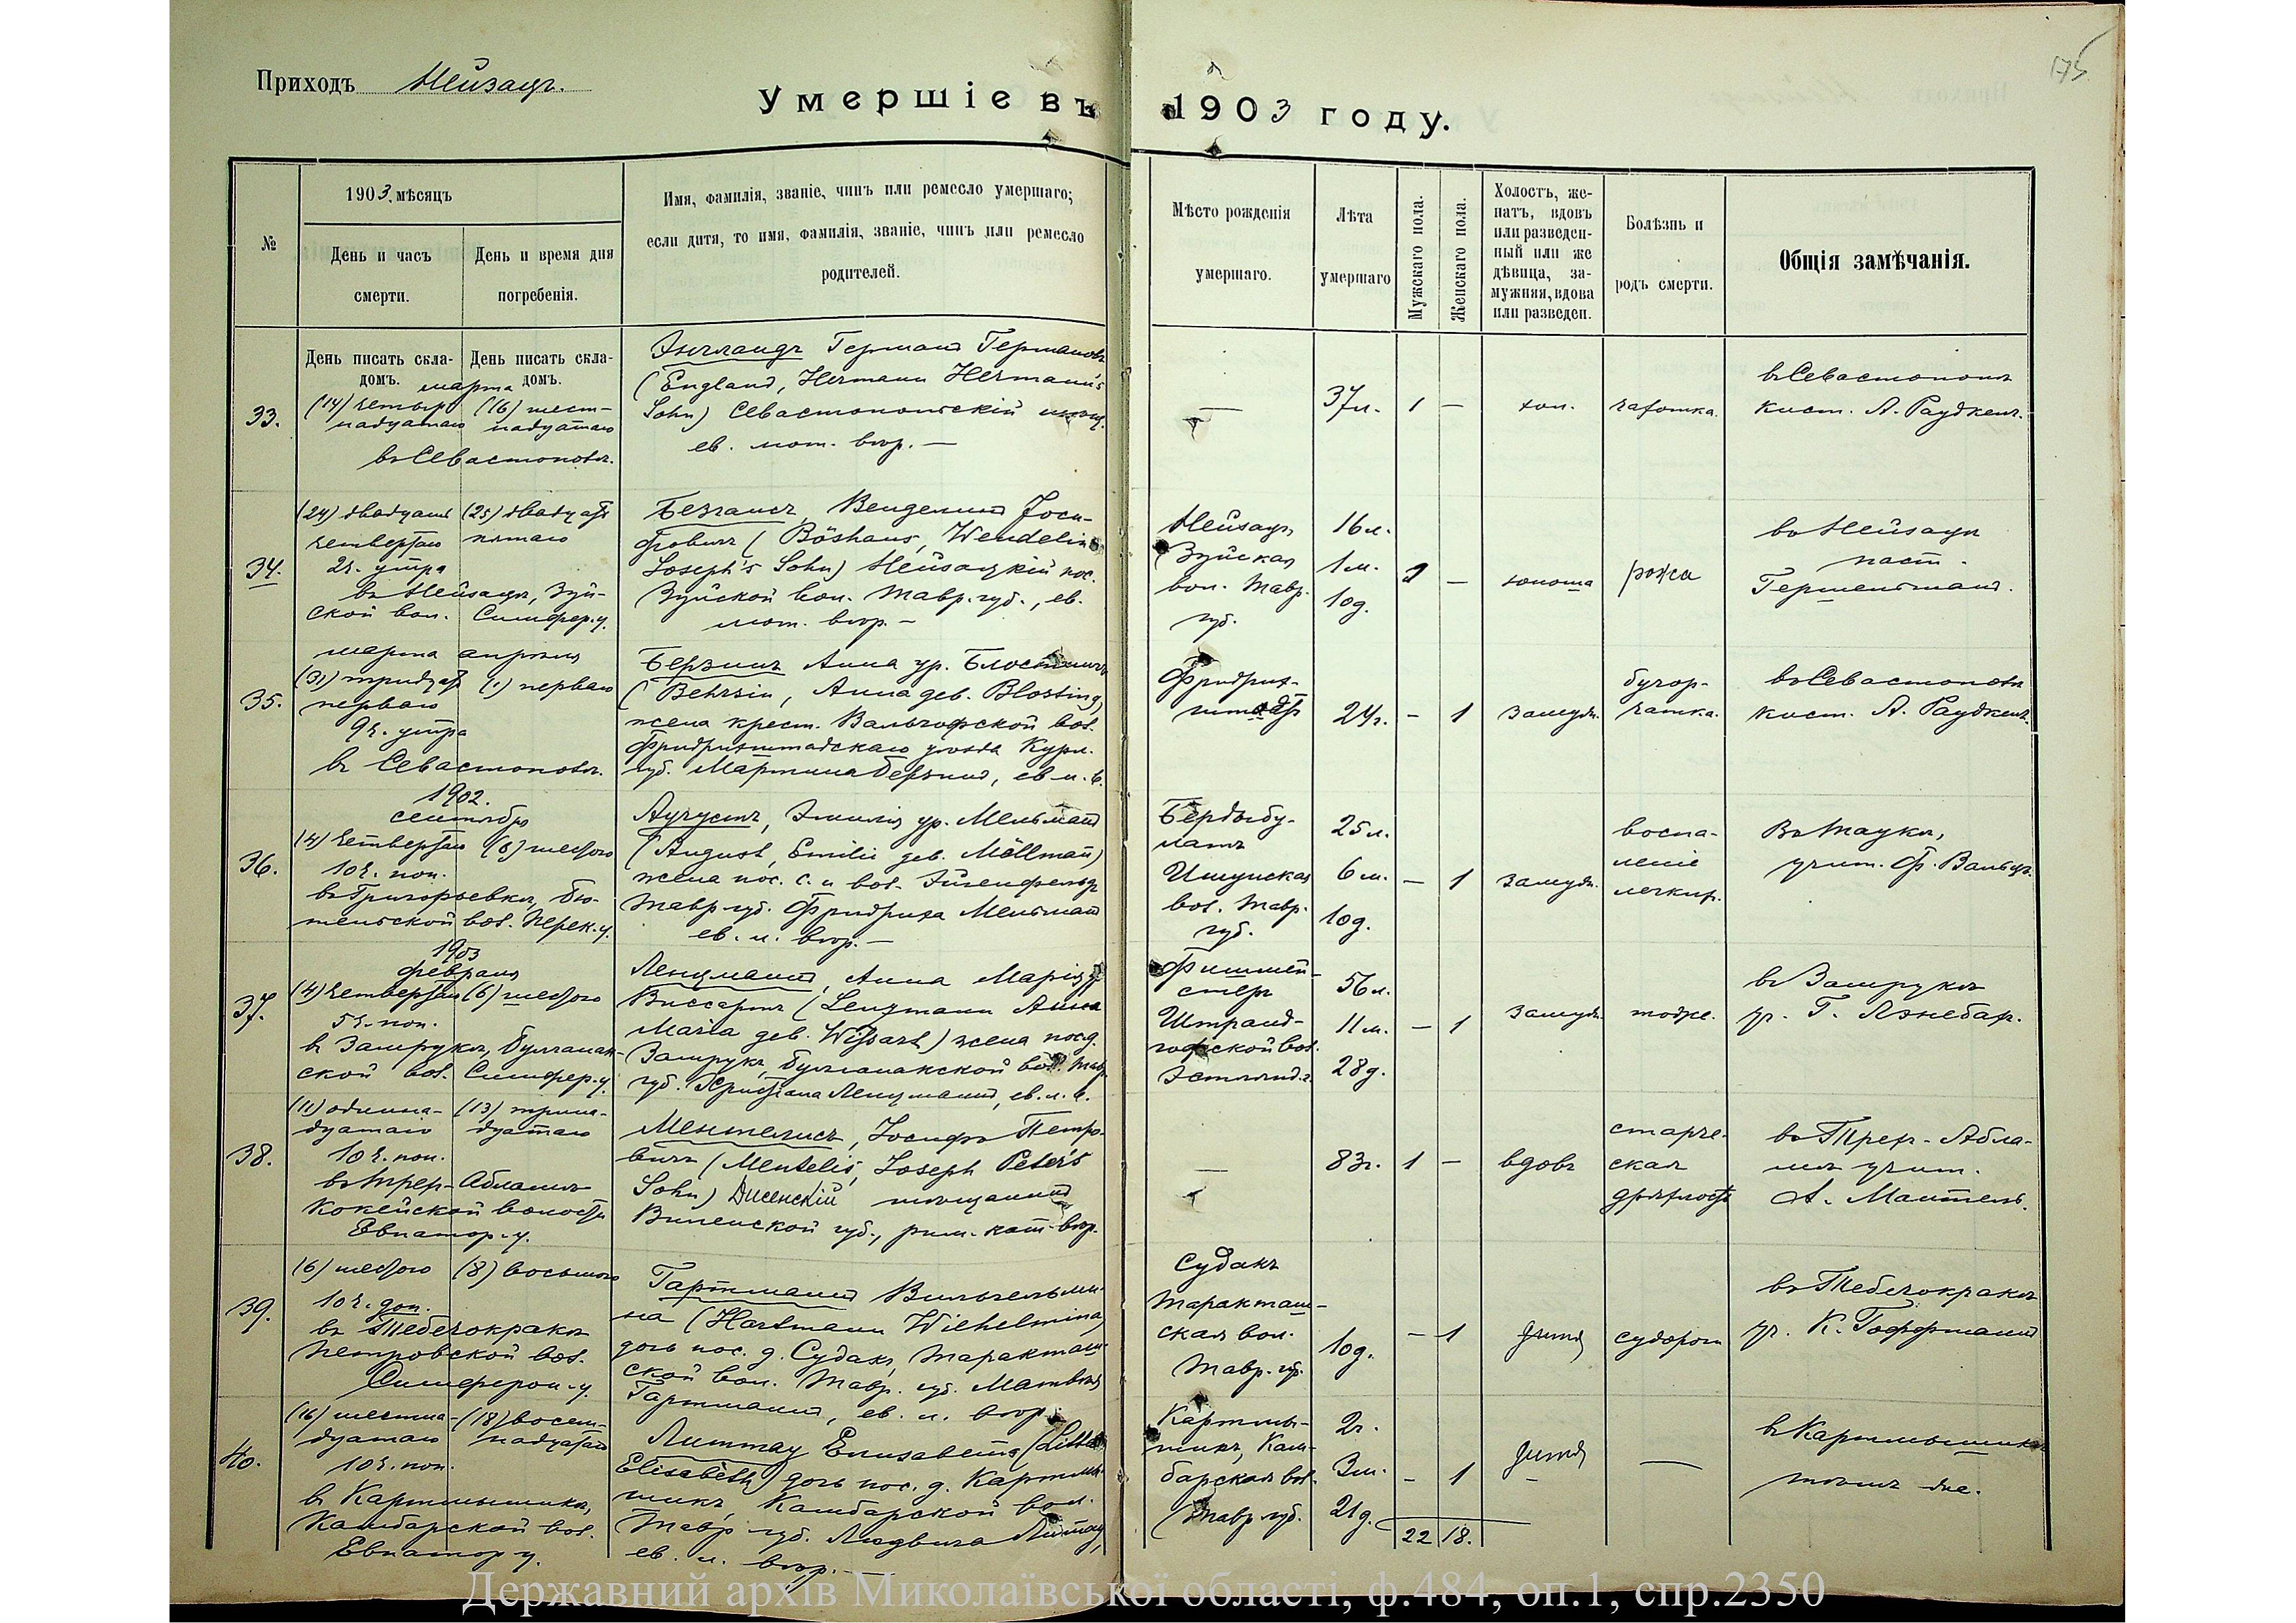 Приходъ Нейзацъ.
175
Умершіе въ 1903 году.
№
1903 мѣсяцъ
День и часъ
смерти.
День и время дня
погребенія.
Имя, фамилія, званіе, чинъ или ремесло умершаго;
если дитя, то имя, фамилія, званіе, чинъ или ремесло
родителей.
Мѣсто рожденія
умершаго.
Лѣта
умершаго
Мужскаго пола.
Женскаго пола.
Холостъ, же-
натъ, вдовъ
или разведен-
ный или же
дѣвица, за-
мужняя, вдова
или разведен.
Болѣзнь и
родъ смерти.
Общія замѣчанія.
День писать скла-
домъ.
День писать скла-
домъ.
марта
33.
(14) четыр
надцатаго
(16) шест-
надцатаго
въ Севастополѣ.
Энгландъ Германъ Германовъ
(England, Hermann Hermann's
Sohn) Севастопольскій
ев. лют. вѣр. —
—
37л.
1
—
хол.
чахотка.
въ Севастополѣ
кист. А. Раудкеп.
34.
(24) двадцать
четвертаго
2ч. утра
(25) двадцать
пятаго
въ Нейзацѣ, Зуй-
ской вол. Симфер.у.
Безгансъ, Венделинъ Іоси-
фовичъ (Böshans, Wendelin
Joseph's Sohn) Нейзацкій пос.
Зуйской вол. Тавр. губ., ев.
лют. вѣр. —
Нейзацъ
Зуйская
вол. Тавр.
губ.
16л.
1м.
10д.
1
—
юноша
рожа
въ Нейзацѣ
паст.
35.
марта апрѣля
(31) тридцать
перваго
9ч. утра
(1) перваго
въ Севастополѣ.
Берзинъ Анна ур. Блостингъ
(Behrsin, Anna geb. Blosting)
жена крест. Вальгофской вол.
Фридрихштадскаго уѣзда Курл.
губ. Мартина Берзинъ, ев. л. в.
Фридрих-
штадтъ
24г.
—
1
замужн.
бугор-
чатка.
въ Севастополѣ
кист. А. Раудкеп.
36.
1902.
сентябрь
(4) четвертаго
10ч. поп.
(6) шестого
въ Григорьевкѣ, Бю-
тенской вол. Перек.у.
Августъ, Эмилія ур. Мельманъ
(August, Emilie geb. Möllman)
жена пос. с. и вол. Эйгенфельдъ
Тавр губ. Фридриха Мельманъ
ев. л. вѣр. —
Бердыбу-
латъ
Ишунская
вол. Тавр.
губ.
25л.
6м.
10д.
—
1
замужн.
воспа-
леніе
легкихъ.
учит. Ф. Вальцъ.
37.
1903
февраля
(4) четвертаго
5ч. поп.
(6) шестого
въ Замрукѣ, Булганак-
ской вол. Симфер.у.
Ленцманъ, Анна Марія ур.
Виссартъ (Lenzmann Anna
Maria geb. Wissart) жена посд.
Замрукъ, Булганакской вол. Тавр.
губ. Христіана Ленцманъ, ев. л. в.
56л.
11м.
28д.
—
1
замужн.
тоже.
въ Замрукѣ
38.
(11) одинна-
дцатаго
10ч. поп.
(13) трина-
дцатаго
въ Трех-Абламъ
Кокейской волости
Евпатор.у.
Ментелисъ, Іосифъ Петро-
вичъ (Mentelis, Joseph Peter's
Sohn) Дисенскій мѣщанинъ
Виленской губ., рим. кат. вѣр.
—
83г.
1
—
вдовъ
старче-
ская
дряхлость
въ Трех-Абла-
мѣ учит.
А. Мантель.
39.
(6) шестого
10ч. доп.
(8) восьмого
въ Тебечокракѣ
Петровской вол.
Симфероп.у.
Гартманъ Вильгельми-
на (Hartmann Wilhelmina)
дочь пос. д. Судакъ, Таракташ-
ской вол. Тавр. губ. Матвѣя
Гартманъ, ев. л. вѣр.
Судакъ
Таракташ-
ская вол.
Тавр. губ.
10д.
—
1
дитя
судороги
въ Тебечокракѣ
уч. К. Гоффманъ
40.
(16) шестна-
дцатаго
10ч. поп.
(18) восем-
надцатаго
въ Картмышикѣ,
Камбарской вол.
Евпатор у.
Литтау Елисавета (Litta
Elisabeth) дочь пос. д. Картмы-
шикъ, Камбарской вол.
Тавр губ. Людвига Литтау,
ев. л. вѣр. —
Картмы-
шикъ, Кам-
барская вол.
Тавр губ.
2г.
3м.
21д.
—
1
дитя
—
въ Картмышикѣ
22 18.
Державний архів Миколаївської області, ф.484, оп.1, спр.2350